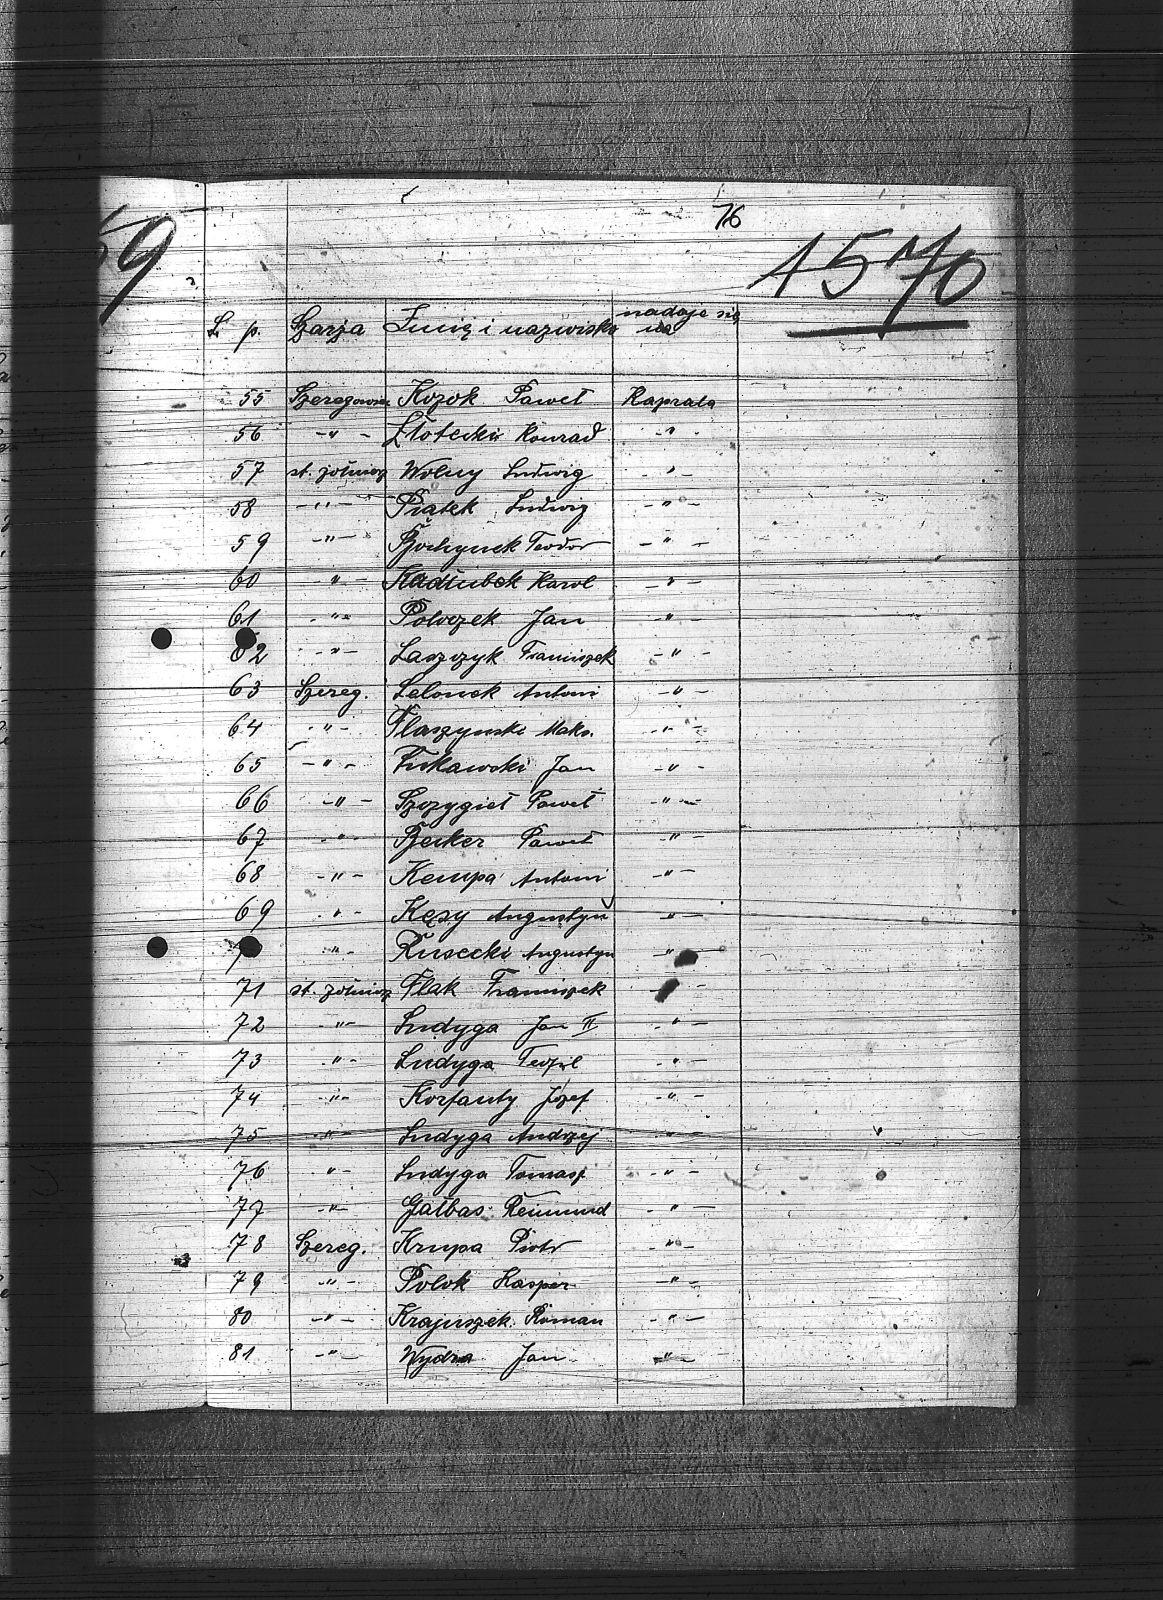 76
59
1570
L. p. Szarża Imię i nazwisko nadaje się na
55 Szeregowiec Kozok Paweł Kaprala
56 -"- Złotecki Konrad -"-
57 st. żołnierz Wolny Ludwig -"-
58 -"- Piątek Ludwig -"-
59 -"- Bochynek Teodor -"-
60 -"- Kadłubek Karol -"-
61 -"- Poloczek Jan -"-
62 -"- Laszczyk Franciszek -"-
63 Szereg. Lelonek Antoni -"-
64 -"- Flaszynski Maks. -"-
65 -"- Fukawski Jan -"-
66 -"- Szczygieł Paweł -"-
67 -"- Becker Paweł -"-
68 -"- Kempa Antoni -"-
69 -"- Kęsy Augustyn -"-
-"- Augustyn -"-
71 st. żołnierz Flak Franciszek -"-
72 -"- Ludyga Jan II -"-
73 -"- Ludyga Teofil -"-
74 -"- Korfanty Józef -"-
75 -"- Ludyga Andrzej -"-
76 -"- Ludyga Tomasz -"-
77 -"- Gałbas Reimund -"-
78 Szereg. Krupa Piotr -"-
79 -"- Polok Kasper -"-
80 -"- Krajuszek Roman -"-
81 -"- Wydra Jan -"-